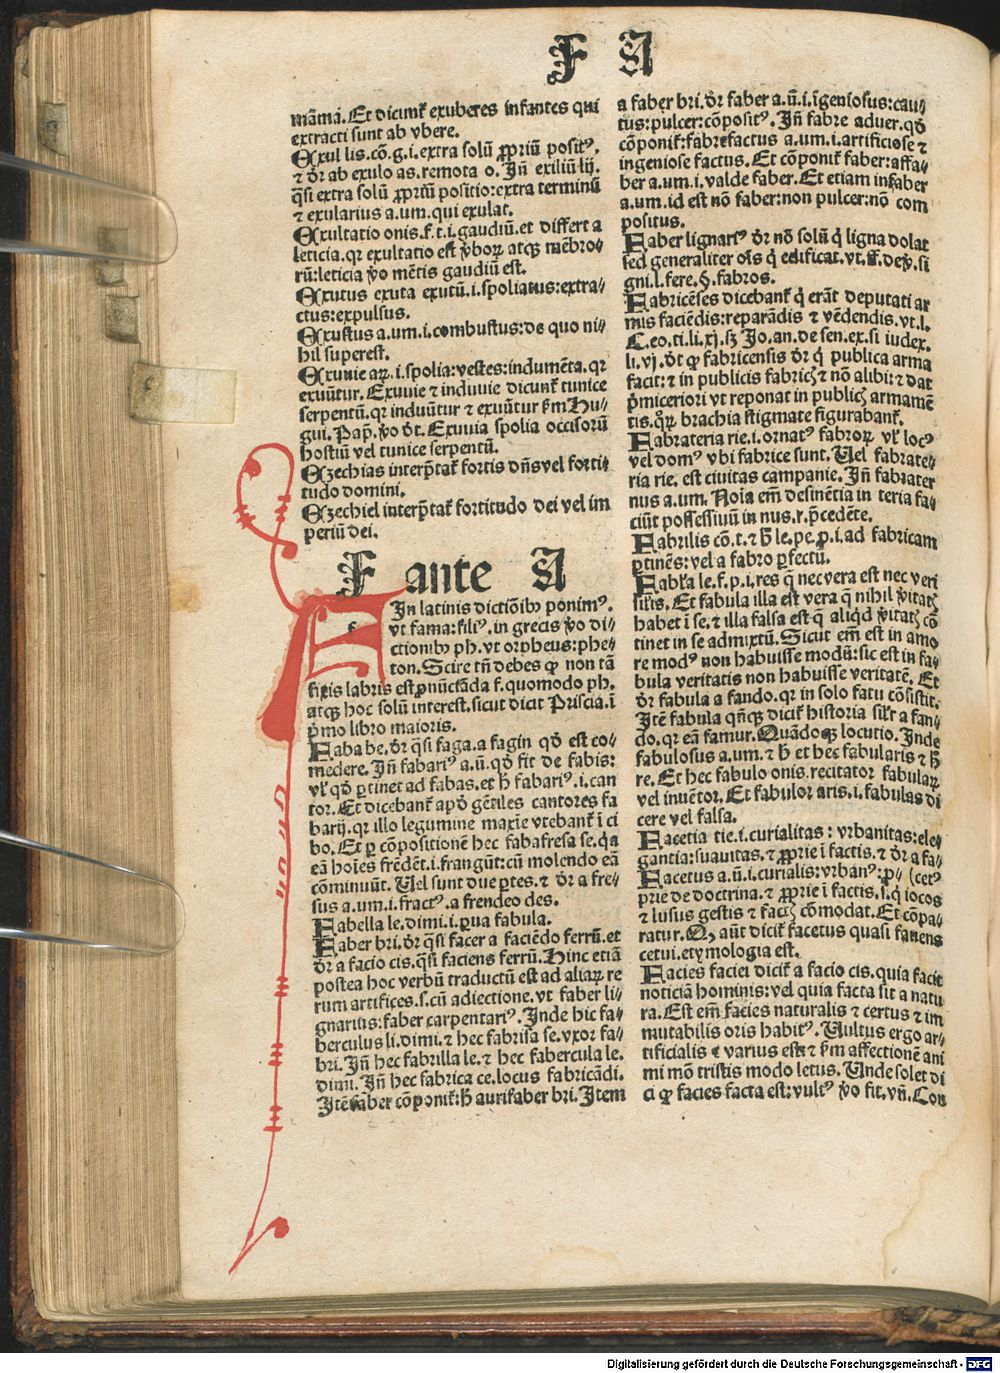 F A
mãma. Et dicunt᷑ exuberes infantes qui
extracti sunt ab vbere.
Exul lis. cõ. g. i. extra solũ ꝓpriũ positꝰ.
⁊ d̄r ab exulo as. remota o. Jñ exiliũ lij.
q̃si extra solũ ꝓpriũ positio: extra terminũ
⁊ exularius a. um. qui exulat.
Exultatio onis. f. t. i. gaudiũ. et differt a
leticia. qꝛ exultatio est v̾boꝝ atqꝫ mēbro⸗
rũ: leticia v̾o mētis gaudiũ est.
Exutus exuta exutũ. i. spoliatus: extra⸗
ctus: expulsus.
Exustus a. um. i. combustus: de quo ni⸗
hil superest.
Exuuie aꝝ. i. spolia: vestes: indumēta. qꝛ
exuũtur. Exuuie ⁊ induuie dicunt᷑ tunice
serpentũ. qꝛ induũtur ⁊ exuũtur ẜm Hu⸗
gui. Pap̃. v̾o d̄t. Exuuia spolia occisorũ
hostiũ vel tunice serpentũ.
Ezechias interp̃tat᷑ fortis dñs vel forti⸗
tudo domini.
Ezechiel interp̃tat᷑ fortitudo dei vel im
periũ dei.
F ante A
f
Jn latinis dictiõibꝰ ponimꝰ.
vt fama: filiꝰ. in grecis v̾o di⸗
ctionibꝰ ph. vt orpheus: phe⸗
ton. Scire tñ debes ꝙ non tã
fixis labris est ꝓnũciãda f. quomodo ph.
atqꝫ hoc solũ interest. sicut dicit Priscia. ĩ
p̃mo libro maioris.
Faba be. d̄r q̃si faga. a fagin qd̛ est co⸗
medere. Jñ fabariꝰ a. ũ. qd̛ fit de fabis:
vl̛ qd̛ ꝑtinet ad fabas. et h̄ fabariꝰ. i. can
tor. Et dicebant᷑ apd̛ gētiles cantores fa
barij. qꝛ illo legumine maxĩe vtebant᷑ ĩ ci
bo. Et ꝑ cõpositionē hec fabafresa se. q̃a
eã hoĩes frēdēt. i. frangũt: cũ molendo eã
cõminuũt. Uel sunt due ꝑtes. ⁊ d̄r a fre⸗
sus a. um. i. fractꝰ. a frendeo des.
Fabella le. dimi. i. ꝑua fabula.
Faber bri. d̄r q̃si facer a faciēdo ferrũ. et
d̄r a facio cis. q̃si faciens ferrũ. Hinc etiã
postea hoc verbũ traductũ est ad aliaꝝ re
rum artifices. s. cũ adiectione. vt faber li⸗
gnarius: faber carpentariꝰ. Jnde hic fa⸗
berculus li. dimi. ⁊ hec fabrisa se. vxor fa⸗
bri. Jñ hec fabrilla le. ⁊ hec fabercula le.
dimi. Jñ hec fabrica ce. locus fabricãdi.
Jtē faber cõponit᷑: h̄ aurifaber bri. Jtem
a faber bri. d̄r faber a. ũ. i. ĩgeniosus: cau⸗
tus: pulcer: cõpositꝰ. Jñ fabre aduer. qd̛
cõponit᷑: fabrefactus a. um. i. artificiose ⁊
ingeniose factus. Et cõponit᷑ faber: affa⸗
ber a. um. i. valde faber. Et etiam infaber
a. um. id est nõ faber: non pulcer: nõ com
positus.
Faber lignariꝰ d̄r nõ solũ q̇ ligna dolat
sed generaliter oĩs q̇ edificat. vt. ff. de v̾. si
gni. l. fere. §. fabros.
Fabricēses dicebant᷑ q̇ erãt deputati ar
mis faciēdis: reparãdis ⁊ vēdendis. vt. l.
C. eo. ti. li. xj. sꝫ Jo. an. de sen. ex. si iudex.
li. vj. d̄t ꝙ fabricensis d̄r q̇ publica arma
facit: ⁊ in publicis fabricꝭ ⁊ nõ alibi: ⁊ dat
p̃miceriori vt reponat in publicꝭ armamē
tis. qꝛ brachia stigmate figurabant᷑.
Fabrateria rie. i. ornatꝰ fabroꝝ vl̛ locꝰ
vel domꝰ vbi fabrice sunt. Uel fabrate⸗
ria rie. est ciuitas campanie. Jñ fabrater
nus a. um. Noĩa em̃ desinētia in teria fa⸗
ciũt possessiuũ in nus. r. p̃cedēte.
Fabrilis cõ. t. ⁊ h̄ le. pe. ꝓ. i. ad fabricam
ꝑtinēs: vel a fabro ꝑfectũ.
Fabl̛a le. f. p. i. res q̃ nec vera est nec veri
sil̛is. Et fabula illa est vera q̃ nihil v̾itatꝭ
habet ĩ se. ⁊ illa falsa est q̃ aliqd̛ v̾itatꝭ cõ
tinet in se admixtũ. Sicut em̃ est in amo
re modꝰ non habuisse modũ: sic est in fa⸗
bula veritatis non habuisse veritatē. Et
d̄r fabula a fando. qꝛ in solo fatu cõsistit.
Jtē fabula qñqꝫ dicit᷑ historia sil̛r a fan⸗
do. qꝛ eã famur. Quãdoqꝫ locutio. Jnde
fabulosus a. um. ⁊ h̄ et hec fabularis ⁊ h̄
re. Et hec fabulo onis. recitator fabulaꝝ
vel inuētor. Et fabulor aris. i. fabulas di
cere vel falsa.
Facetia tie. i. curialitas: vrbanitas: ele⸗
gantia: suauitas. ⁊ ꝓprie ĩ factis. ⁊ d̄r a fa⸗
Facetus a. ũ. i. curialis: vrbanꝰ: ꝓ⸗ (cetꝰ
prie de doctrina. ⁊ ꝓprie ĩ factis. s. q̇ iocos
⁊ lusus gestis ⁊ factꝭ cõmodat. Et cõpa⸗
ratur. Qñ aũt dicit᷑ facetus quasi fauens
cetui. etymologia est.
Facies faciei dicit᷑ a facio cis. quia facit
noticiã hominis: vel quia facta sit a natu
ra. Est em̃ facies naturalis ⁊ certus ⁊ im
mutabilis oris habitꝰ. Uultus ergo ar⸗
tificialis ⁊ varius est: ⁊ ẜm affectionē ani
mi mõ tristis modo letus. Unde solet di
ci ꝙ facies facta est: vultꝰ v̾o fit. vñ. Con
Digitalisierung gefördert durch die Deutsche Forschungsgemeinschaft - DFG